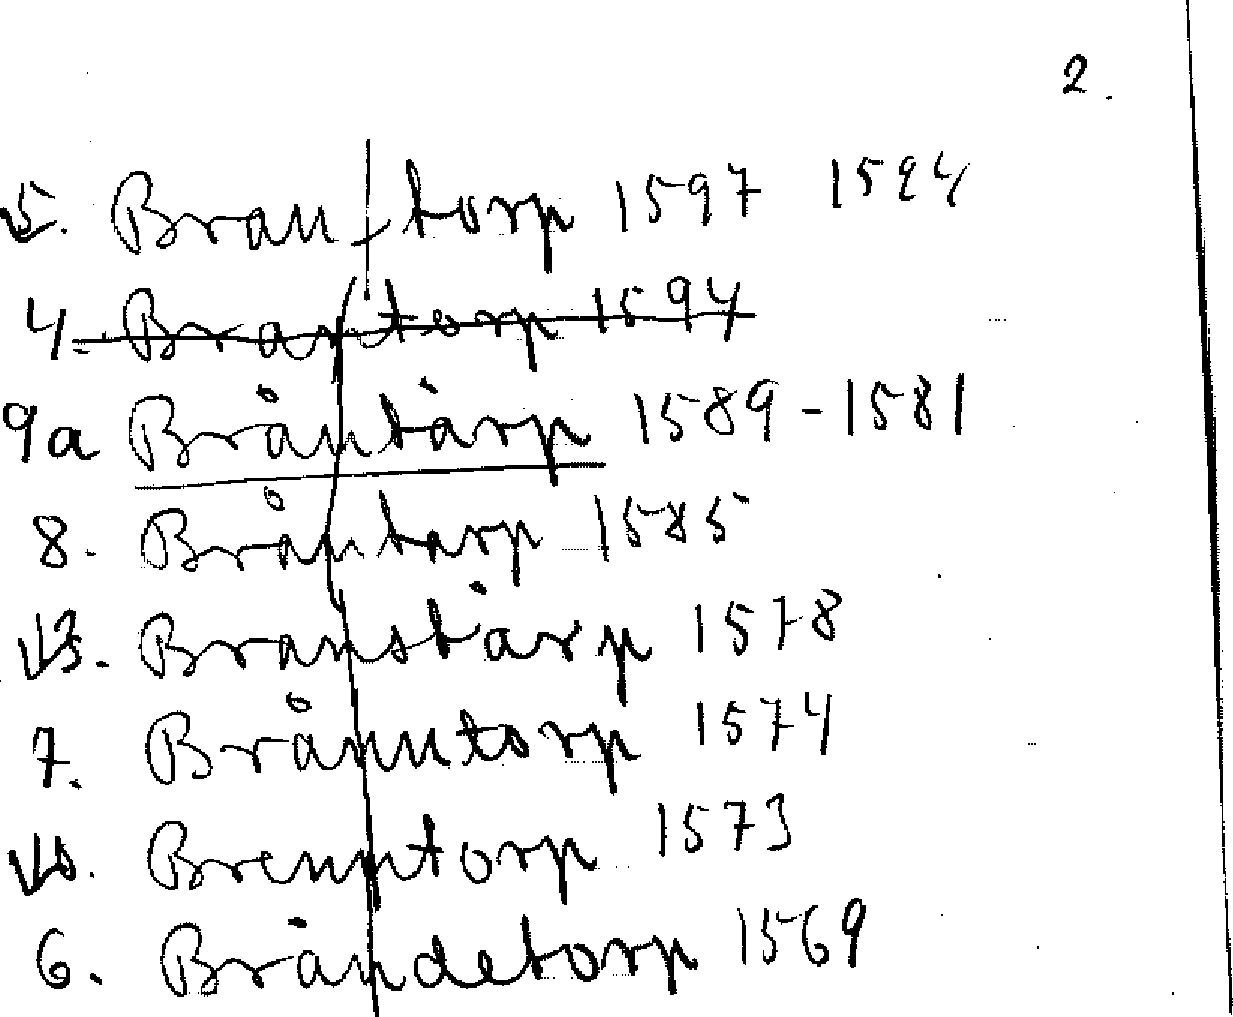 2.
5. Bran-torp 1597 1594
4. Brantorp 1594
9a Bråntårp 1589-1581
8. Bråntarp 1585
Branstårp 1578
7. Brånntorp 1574
Brenntorp 1573
6. Brändetorp 1569